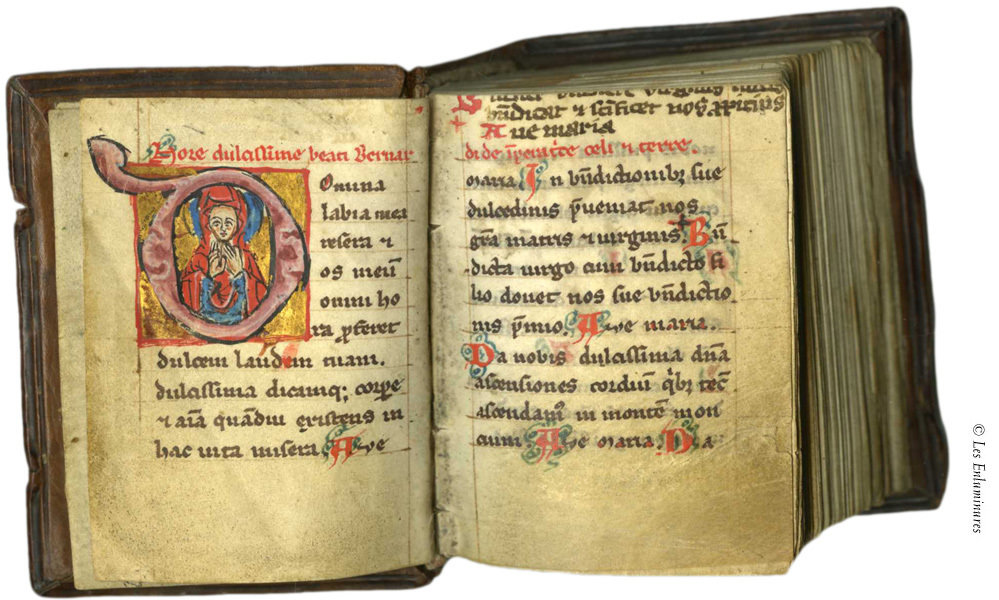 Hore dulcissime beati Bernar
Omina
labia mea
resera ⁊
os meū
omni ho
ra ꝓferet
dulcem laudem tuam.
dulcissima dicamqꝫ corpe
⁊ aīa quādiu existens in
hac uita misera. Aue
bn̄dicat ⁊ scīficet nos
Aue maria
di de īperatͥce celi ⁊ terre
maria. In bn̄dictionibꝫ sue
dulcedinis p̄ueniat nos
gr̄a matris ⁊ uirginis. Bn̄
dicta uirgo cum bn̄dicto fi
lio donet nos sue bn̄dictio
nis p̄mio. Aue maria.
Da nobis dulcissima dn̄a
ascensiones cordiū qͥbꝫ tecū
ascendamꝰ in montē mon
cium. Aue maria. Da
© Les Enluminures